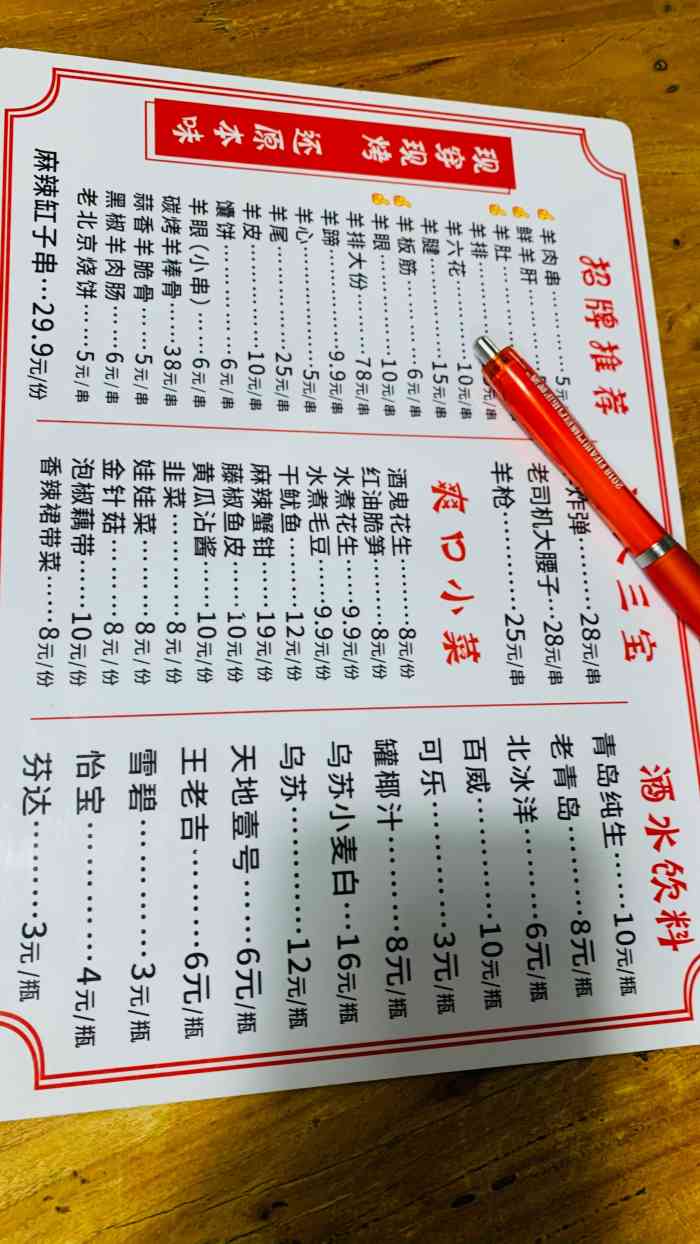 现穿现烤 还原本味
招牌推荐
羊肉串…………5元
鲜羊肝…………
羊肚…………
羊排…………元/串
羊六花………10元/串
羊腱…………15元/串
羊板筋…………6元/串
羊眼…………10元/串
羊排大份……78元/串
羊蹄…………9.9元/串
羊心…………5元/串
羊尾…………25元/串
羊皮…………10元/串
馕饼…………6元/串
羊眼(小串)……6元/串
碳烤羊棒骨……38元/串
蒜香羊脆骨……5元/串
黑椒羊肉肠……6元/串
老北京烧饼……5元/串
麻辣缸子串…29.9元/份
三宝
炸弹………28元/串
老司机大腰子…28元/串
羊枪…………25元/串
爽口小菜
酒鬼花生………8元/份
红油脆笋………8元/份
水煮花生……9.9元/份
水煮毛豆……9.9元/份
干鱿鱼………12元/份
麻辣蟹钳……19元/份
藤椒鱼皮……10元/份
黄瓜沾酱……10元/份
韭菜…………8元/份
娃娃菜………8元/份
金针菇………8元/份
泡椒藕带……10元/份
香辣裙带菜……8元/份
酒水饮料
青岛纯生……10元/瓶
老青岛………8元/瓶
北冰洋………6元/瓶
百威…………10元/瓶
可乐…………3元/瓶
罐椰汁………8元/瓶
乌苏小麦白…16元/瓶
乌苏…………12元/瓶
天地壹号……6元/瓶
王老吉………6元/瓶
雪碧…………3元/瓶
怡宝…………4元/瓶
芬达…………3元/瓶